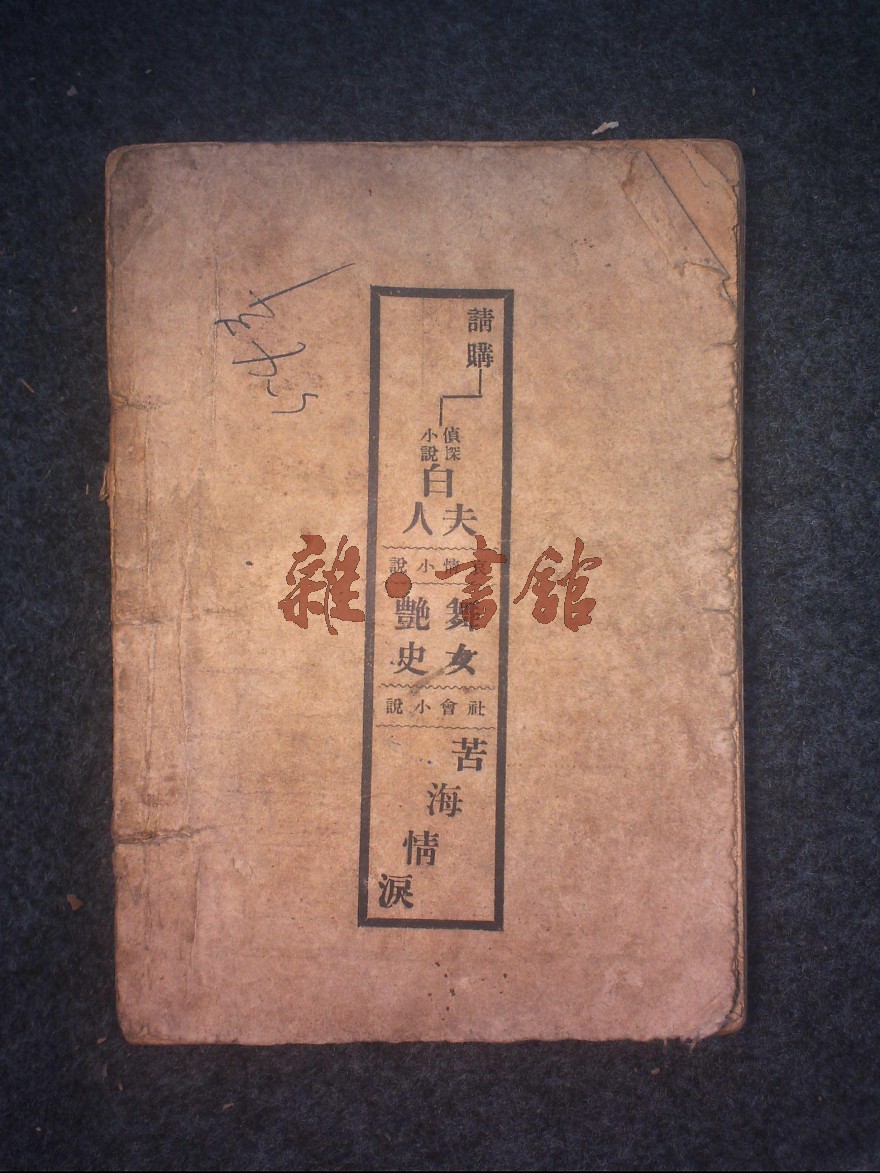 請購
偵探小說
白夫人
哀情小說
舞女艷史
社會小說
苦海情淚
雜·書館